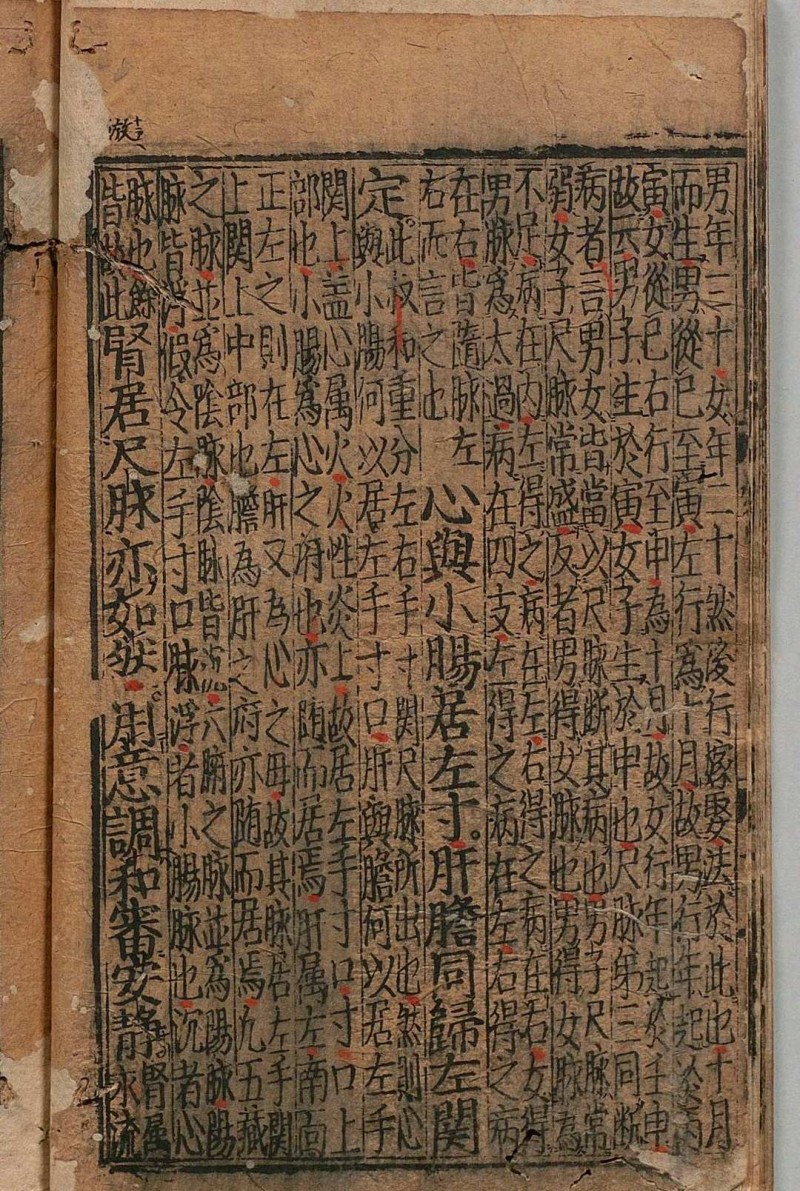 男年三十女年二十然後行嫁娶法於此也十月
而生男從巳至寅左行爲十月故男行年起於丙
寅女從巳右行至申為十月故女行年起於壬申
故云男子生於寅女子生於申也尺脉弟三同断
病者言男女皆當以尺脉断其病也男子尺脉常
弱女子尺脉常盛反者男得女脉也男得女脉為
不足病在内左得之病在左右得之病在右女得
男脉爲太過病在四支左得之病在左右得之病
在右皆隨脉左
右而言之也
心與小腸居左寸肝膽同歸左関
定
此叔和重分左右手寸関尺脉所出也然則心
與小腸何以居左手寸口肝與膽何以居左手
関上盖心属火火性炎上故居左手寸口寸口上
部也小腸爲心之府也亦随而居焉肝属左南面
正左之則在左肝又為心之母故其脉居左手関
上関上中部也膽為肝之府亦随而居焉九五藏
之脉並爲陰脉陰脉皆沉六腑之脉並為陽脉陽
脉皆浮假令左手寸口脉浮者小腸脉也沉者心
脉也餘
皆此
腎居尺脉亦如用意調和審安静
腎属
水流